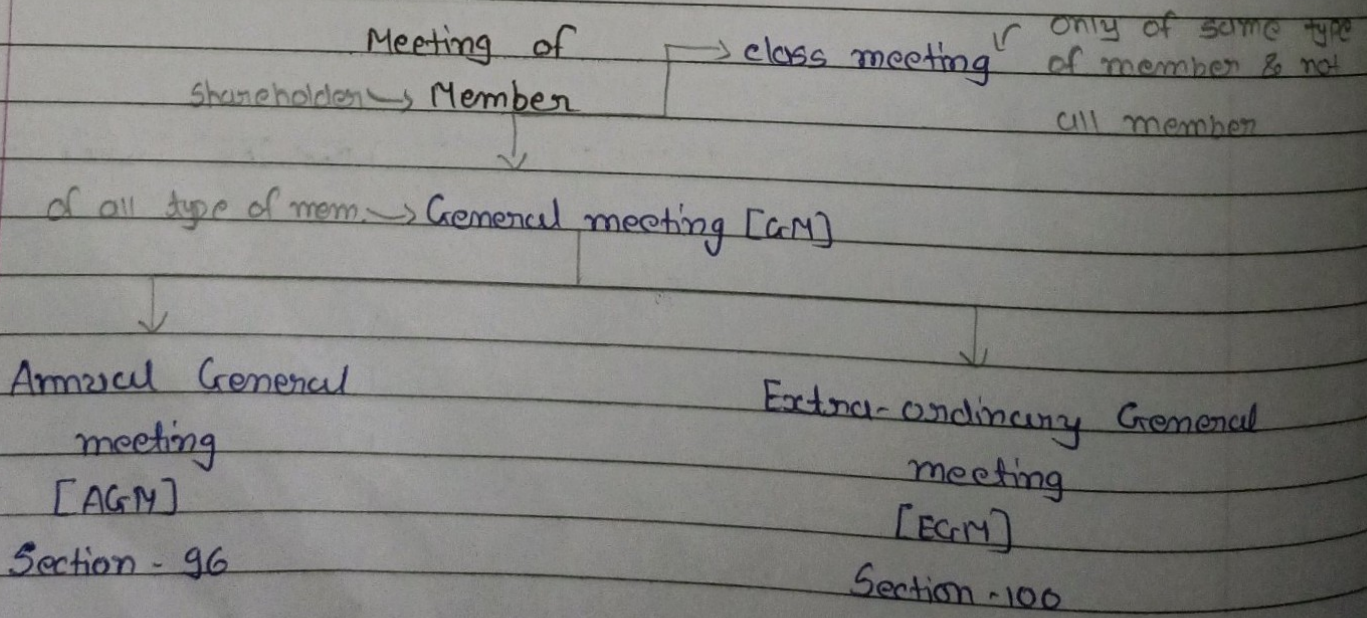 Meeting of
Shareholder → Member
→ class meeting
only of same type
of member & not
all member
of all type of mem. → General meeting [GM]
Annual General
meeting
[AGM]
Section - 96
Extra-ordinary General
meeting
[EGM]
Section - 100